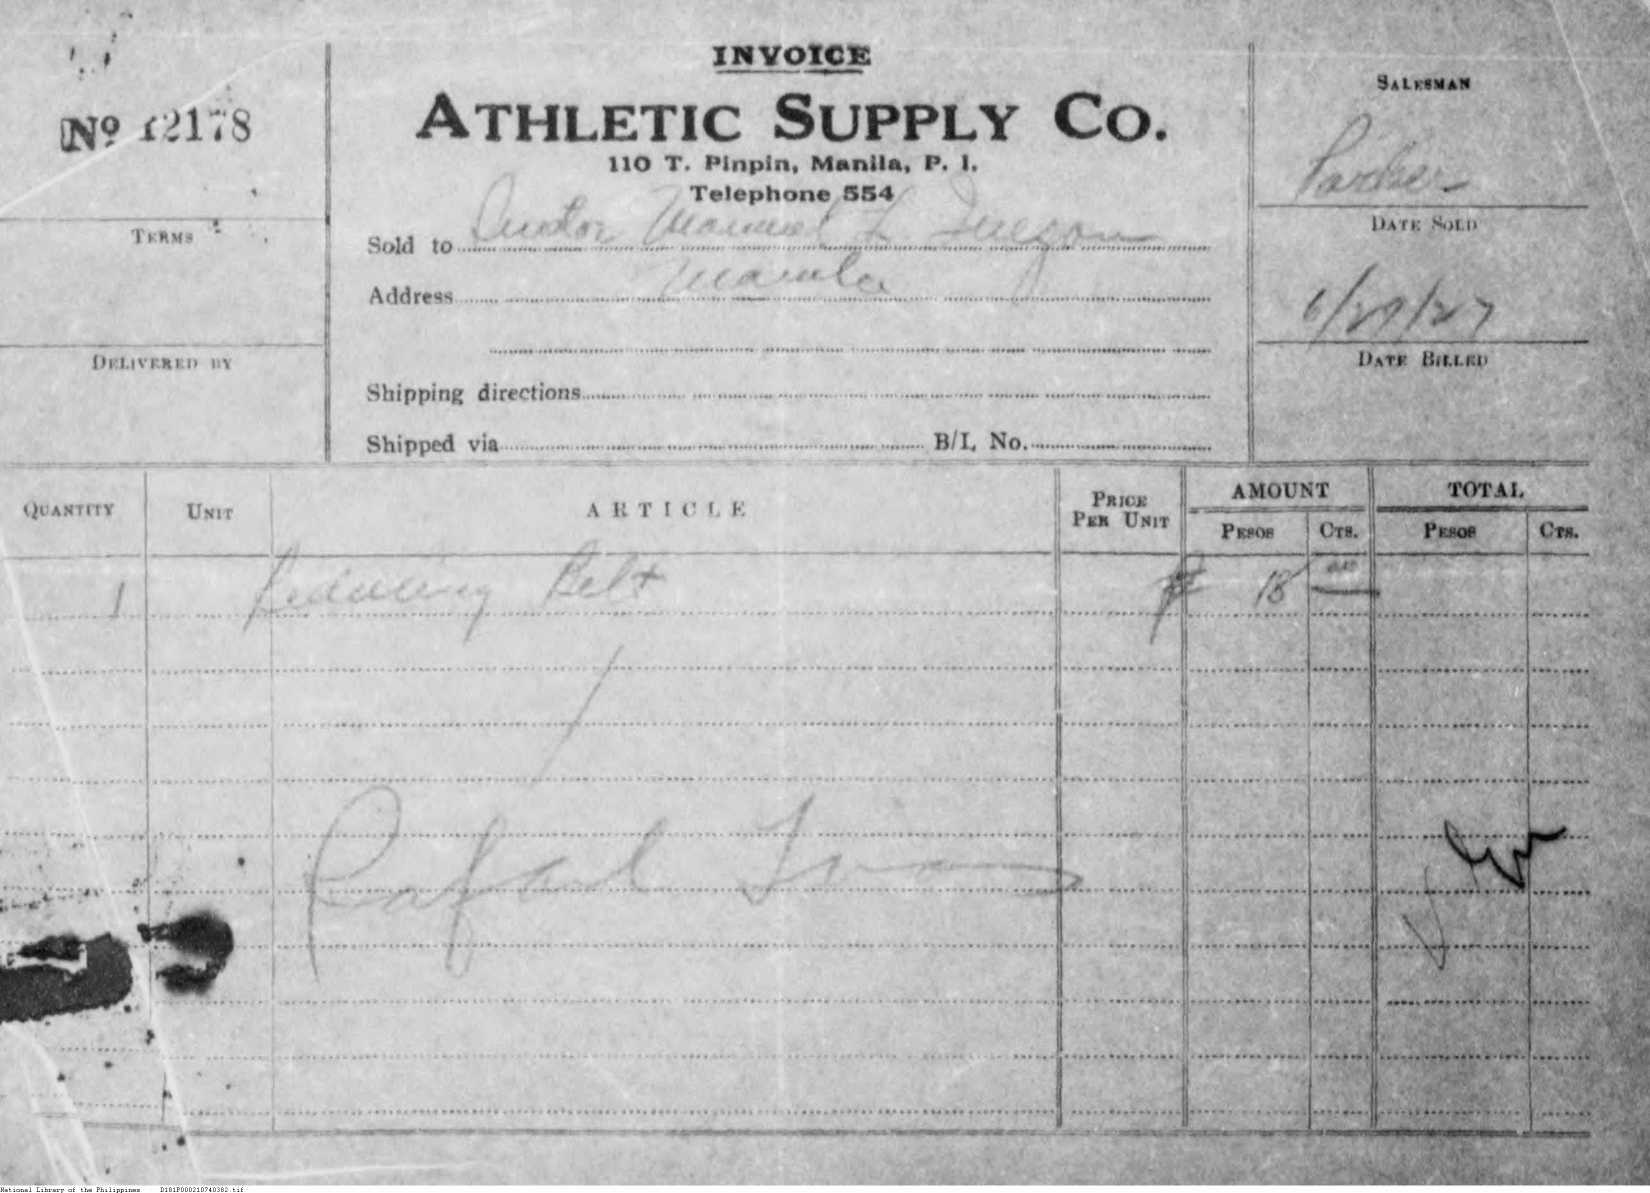 INVOICE
ATHLETIC SUPPLY CO.
110 T. Pinpin, Manila, P. I.
Telephone 554
Nº 12178
TERMS
DELIVERED BY
Sold to Manuel L. Quezon
Address Manila
Shipping directions
Shipped via B/L No.
SALESMAN
Parker
DATE SOLD
6/29/27
DATE BILLED
QUANTITY UNIT ARTICLE PRICE PER UNIT AMOUNT TOTAL
PESOS CTS. PESOS CTS.
1 Reducing Belt ₱ 18 00
Rafael
National Library of the Philippines D181P000210740382.tif